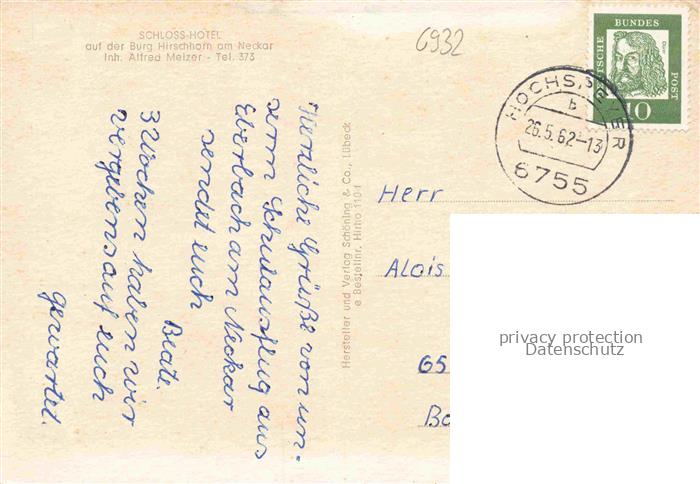 SCHLOSS-HOTEL
auf der Burg Hirschhorn am Neckar
Inh. Alfred Melzer - Tel. 373
6932
DEUTSCHE BUNDES POST
Dürer
10
HOCHSPEYER
b
26.5.62-13
6755
Herzliche Grüße von un-
serm Schulausflug aus
Eberbach am Neckar
sendet euch
Beate.
3 Wochen haben wir
vergebens auf euch
gewartet.
Hersteller und Verlag Schöning & Co., Lübeck
e Bestellnr. Hirho 1104
Herr
Alois
65
Bo
privacy protection
Datenschutz